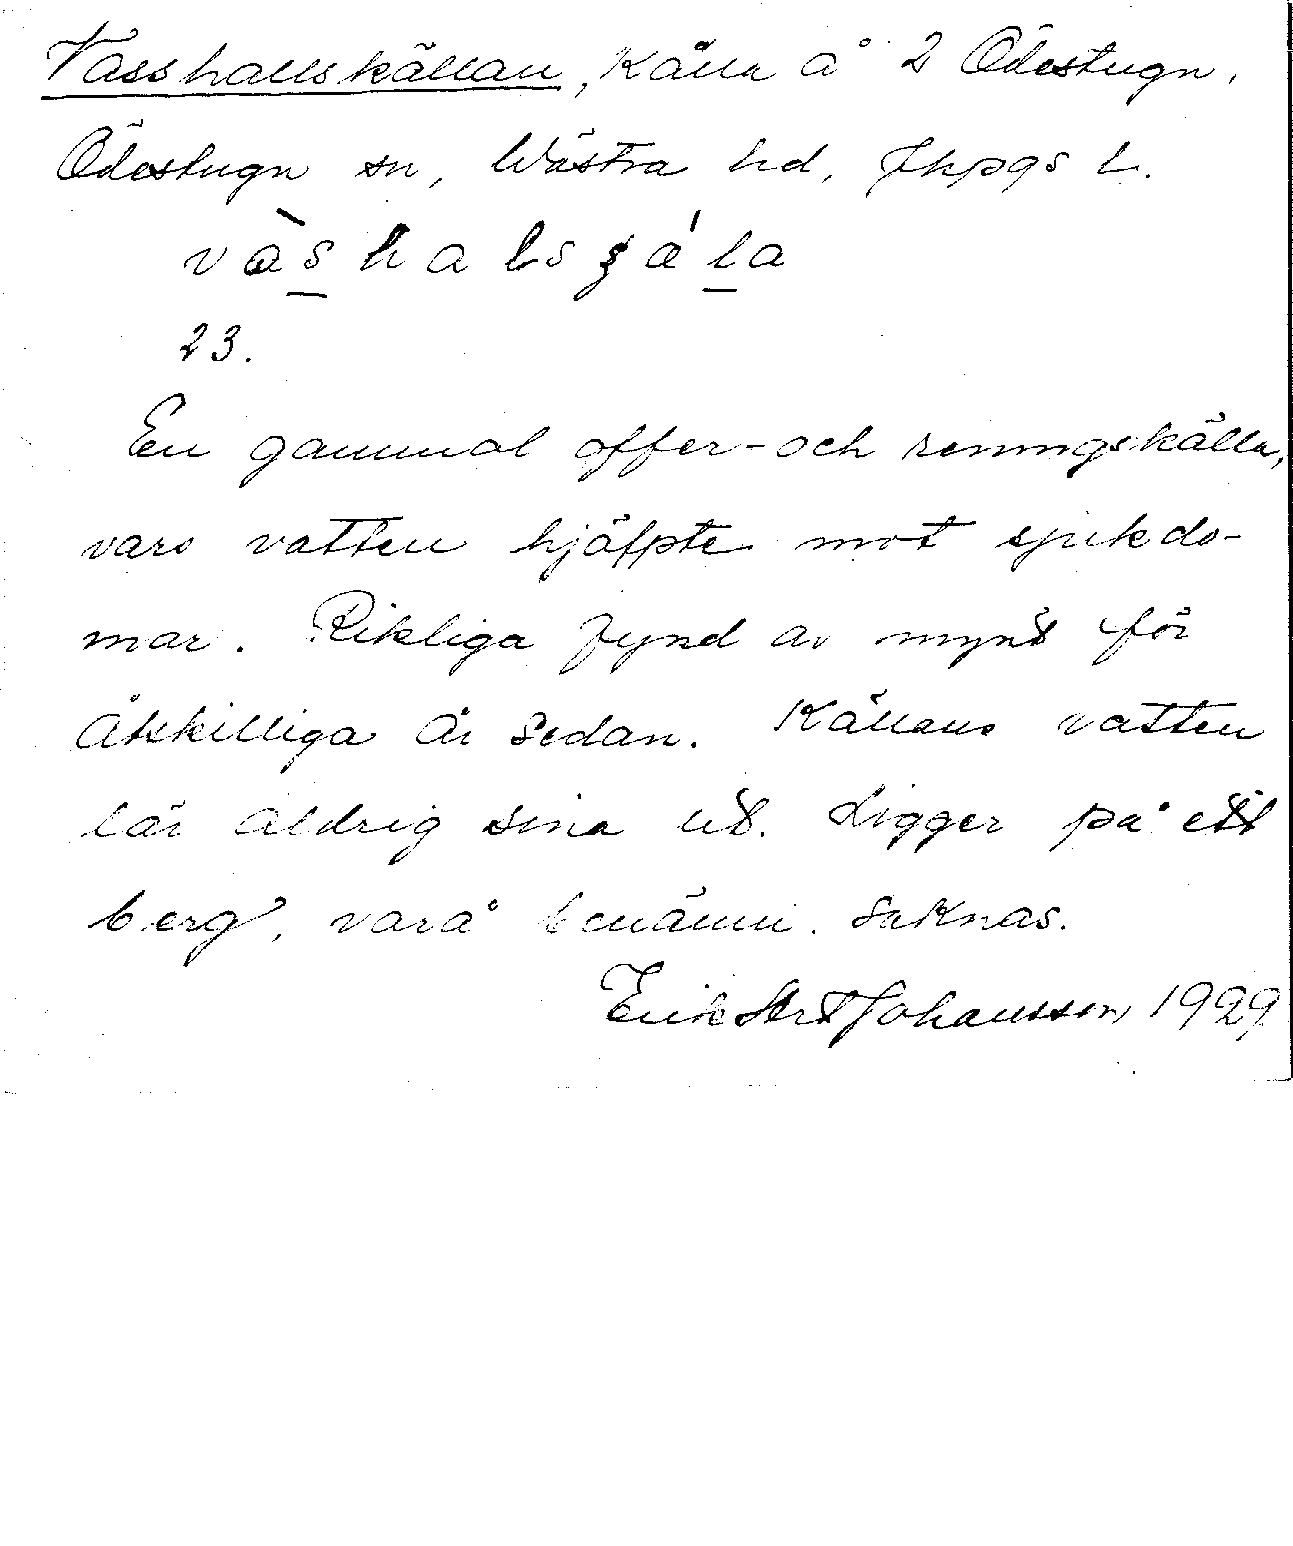 Vasshallskällan, källa å 2 Ödestugn,
Ödestugn sn, Wästra hd, Jkpgs l.
vàshalsꞩá l̲a
23.
En gammal offer- och reningskälla,
vars vatten hjälpte mot sjukdo-
mar. Rikliga fynd av mynt för
åtskilliga år sedan. Källans vatten
lär aldrig sina ut. Ligger på ett
berg, varå benämn. saknas.
Erik Johansson 1929